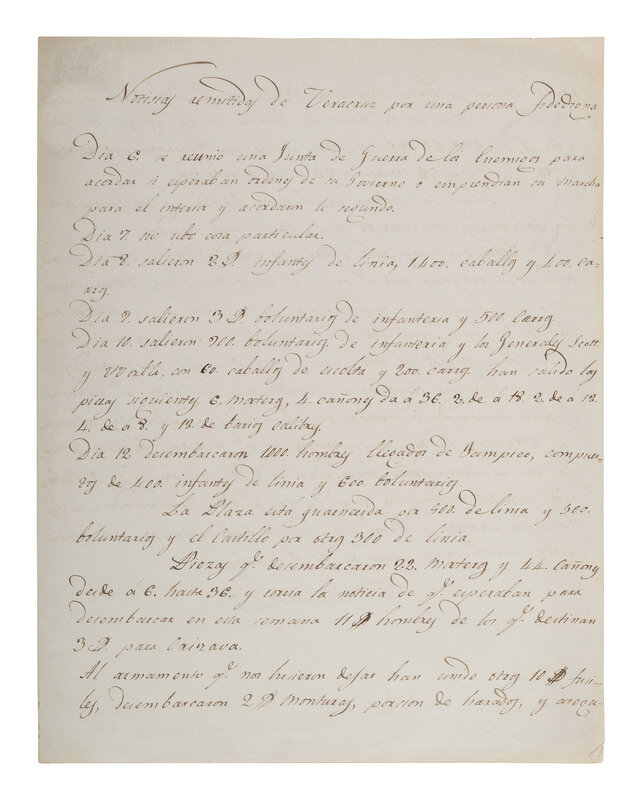 Notisias remitidas de Veracruz por una persona fidedigna
Dia 6. se reunio una Junta de Guerra de los Enemigos para
acordar si esperaban ordenes de su Govierno o emprendian su marcha
para el interior y acordaron lo segundo.
Dia 7. no ubo cosa particular.
Dia 8. salieron 2 D. infantes de linia, 1.400. caballos y 400. ca-
rros.
Dia 9. salieron 3 D. boluntarios de infanteria y 500 Carros.
Dia 10. salieron 900. boluntarios de infanteria y los Generales Scott
y Wortk, con 60. caballos de escolta y 200. carros. han salido las
piezas siguientes 6. Morteros, 4. cañones da a 36. 2. de a 18. 2. de a 18.
4. de a 8. y 18. de barios calibres.
Dia 12 desembarcaron 1000. hombres llegados de Tampico, compues-
tos de 400. infantes de linia y 600. boluntarios
La Plaza esta guarnesida por 500. de linia y 500.
boluntarios y el Castillo por otros 300 de linia.
Piezas q.e desembarcaron 22. morteros y 44. Cañones
desde a 6. hasta 36. y corria la noticia de q.e esperaban para
desembarcar en esta semana 11 D hombres de los q.e destinan
3 D. para Orizava.
Al armamento q.e nos hisieron dejar han unido otros 10 D fusi-
les, desembarcaron 2 D monturas, porsion de harados, y